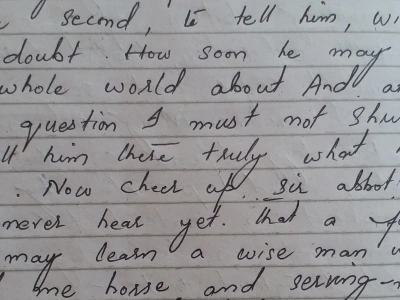 second, to tell him, wi
doubt. How soon he may
whole world about And a
question I must not Shr
ll him there truly what
. Now cheer up.. sir abbot
never hear yet. that a f
may learn a wise man w
me horse and serving-m